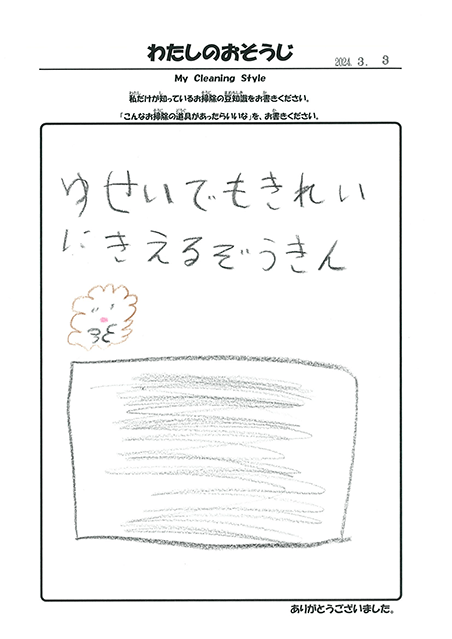 わたしのおそうじ
2024. 3. 3
My Cleaning Style
私だけが知っているお掃除の豆知識をお書きください。
「こんなお掃除の道具があったらいいな」を、お書きください。
ゆせいでもきれい
にきえるぞうきん
ありがとうございました。